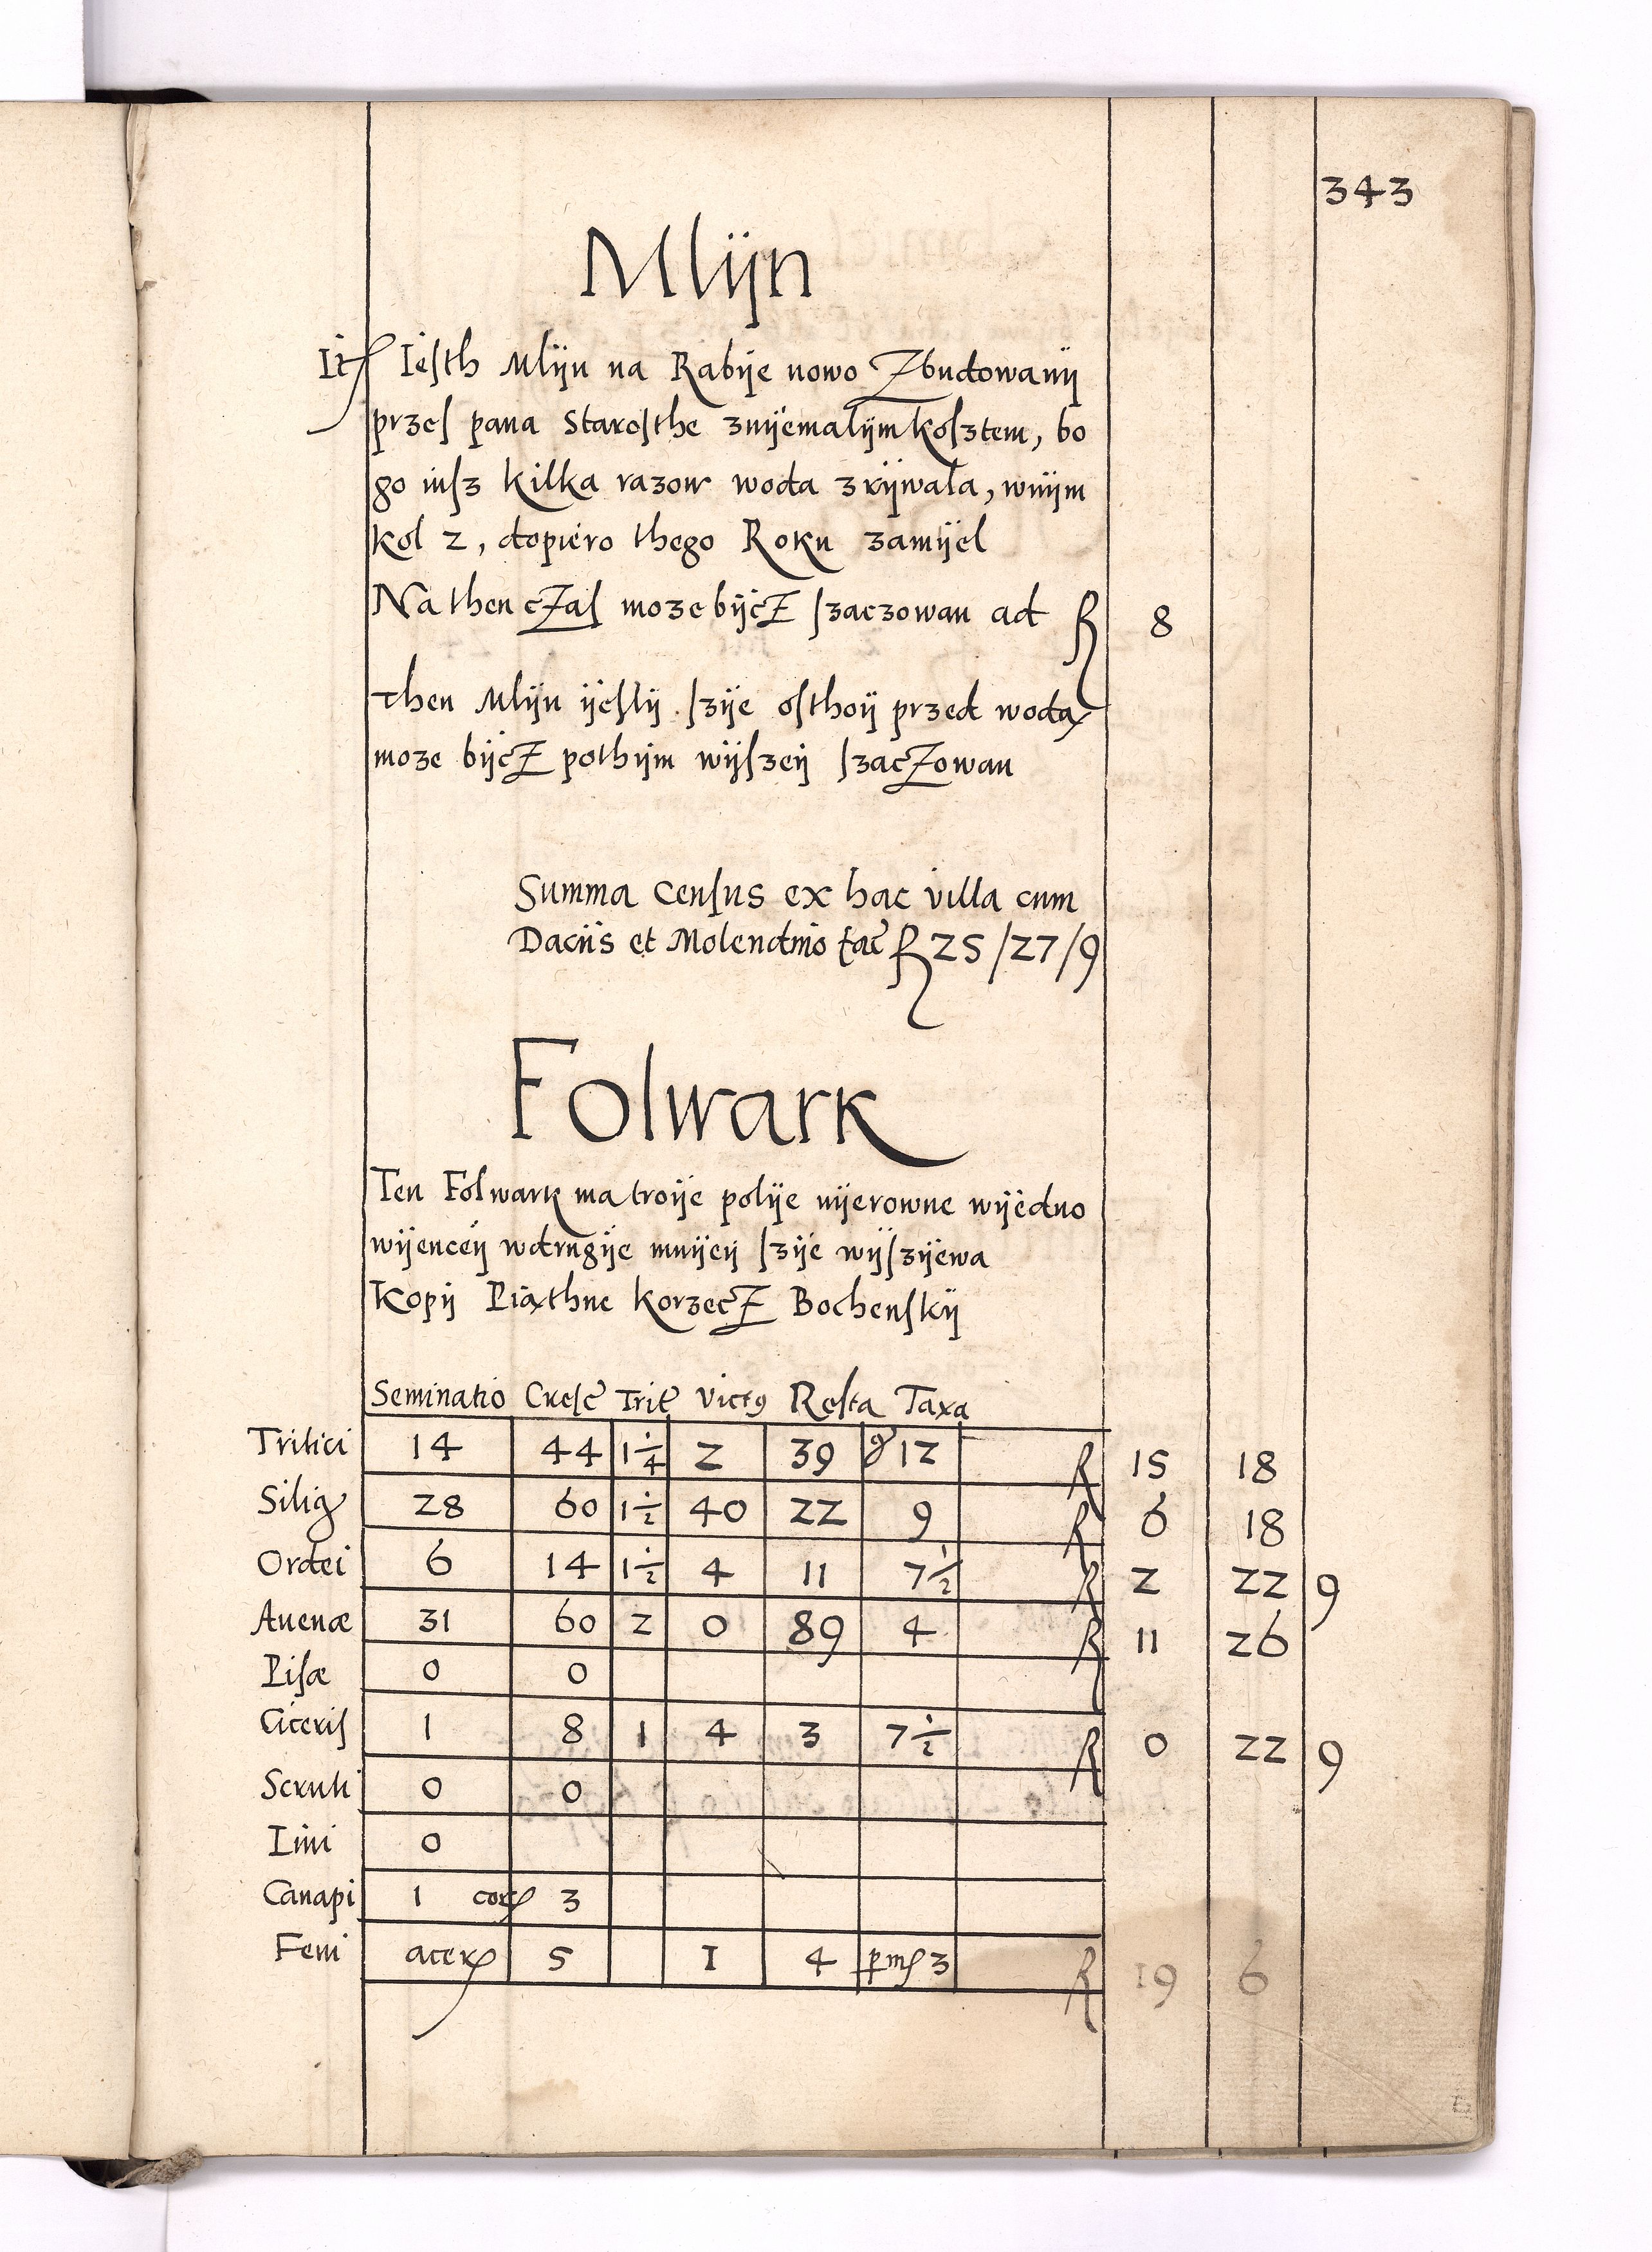 343
Mlÿn
Itꝭ Iesth Mlÿn na Rabÿe nowo Zbudowanÿ
przeſ pana Staroſthe znÿemalÿm koſztem, bo
go iuſz kilka razow woda zrÿwala, wnÿm
kol 2, dopiero thego Roku zamÿel
Na then cZaſ moze bÿcZ ſzaczowan ad ꝶ 8
then Mlÿn ÿeſlÿ ſzÿe oſthoÿ przed woda̧
moze bÿcZ pothÿm wÿſzeÿ ſzacZowan
Summa Cenſus ex hac villa cum
Daciis et Molendino fac ꝶ 25/27/9
Folwark
Ten Folwark ma troÿe polÿe nÿerowne wÿedno
wÿenceÿ wdrugÿe mnÿeÿ ſzÿe wÿſzÿewa
Kopÿ Pia̧thne korzecZ Bochenſkÿ
Seminatio Creſc Trit Victꝰ Reſta Taxa
Tritici 14 44 1¼ 2 39 gꝛ 12 ꝶ 15 18
Silig 28 60 1½ 40 22 9 ꝶ 6 18
Ordei 6 14 1½ 4 11 7½ ꝶ 2 22 9
Auenæ 31 60 2 0 89 4 ꝶ 11 26
Piſæ 0 0
Ciceriſ 1 8 1 4 3 7½ ꝶ 0 22 9
Scruti 0 0
Lini 0
Canapi 1 corꝭ 3
Feni acerꝭ 5 1 4 ꝑ mꝭ 3 ꝶ 19 6